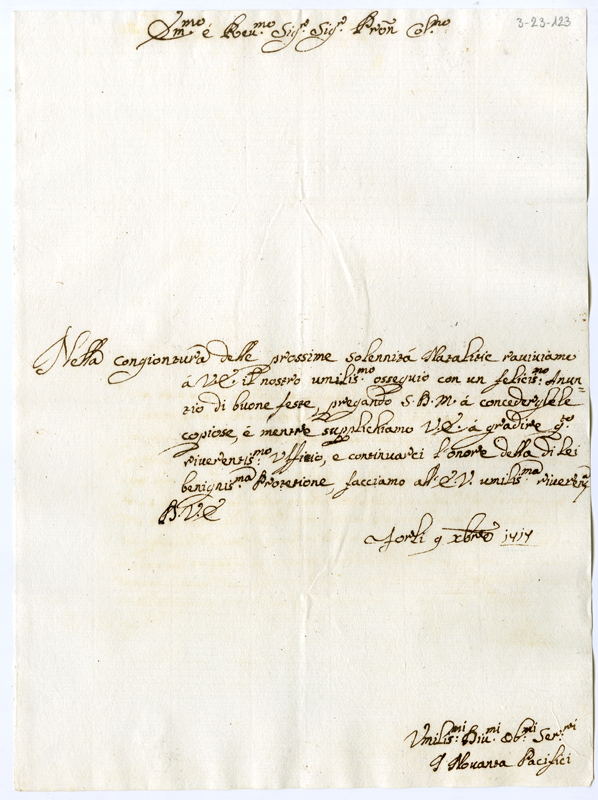 3-23-123
Em.mo é Reu.mo Sig.r Sig.r Pron Col.mo
Nella congiontura delle prossime solennitá Natalitie rauiuiamo
á V.E. il nostro umilis.mo ossequio con un felicis.mo Anun=
tio di buone feste, pregando S.D.M. á concederglele
copiose, é mentre supplichiamo V.E. á gradire q.to
riuerentis.mo Uffizio, e continuarci l'onore della di Lei
benignis.ma Protetione, facciamo all'E.V. umilis.ma riuerenza
D.V.E.
Forlì 9 xbre 1717
Umilis.mi Diu.mi Ob.mi Ser.ri
I Nouanta Pacifici